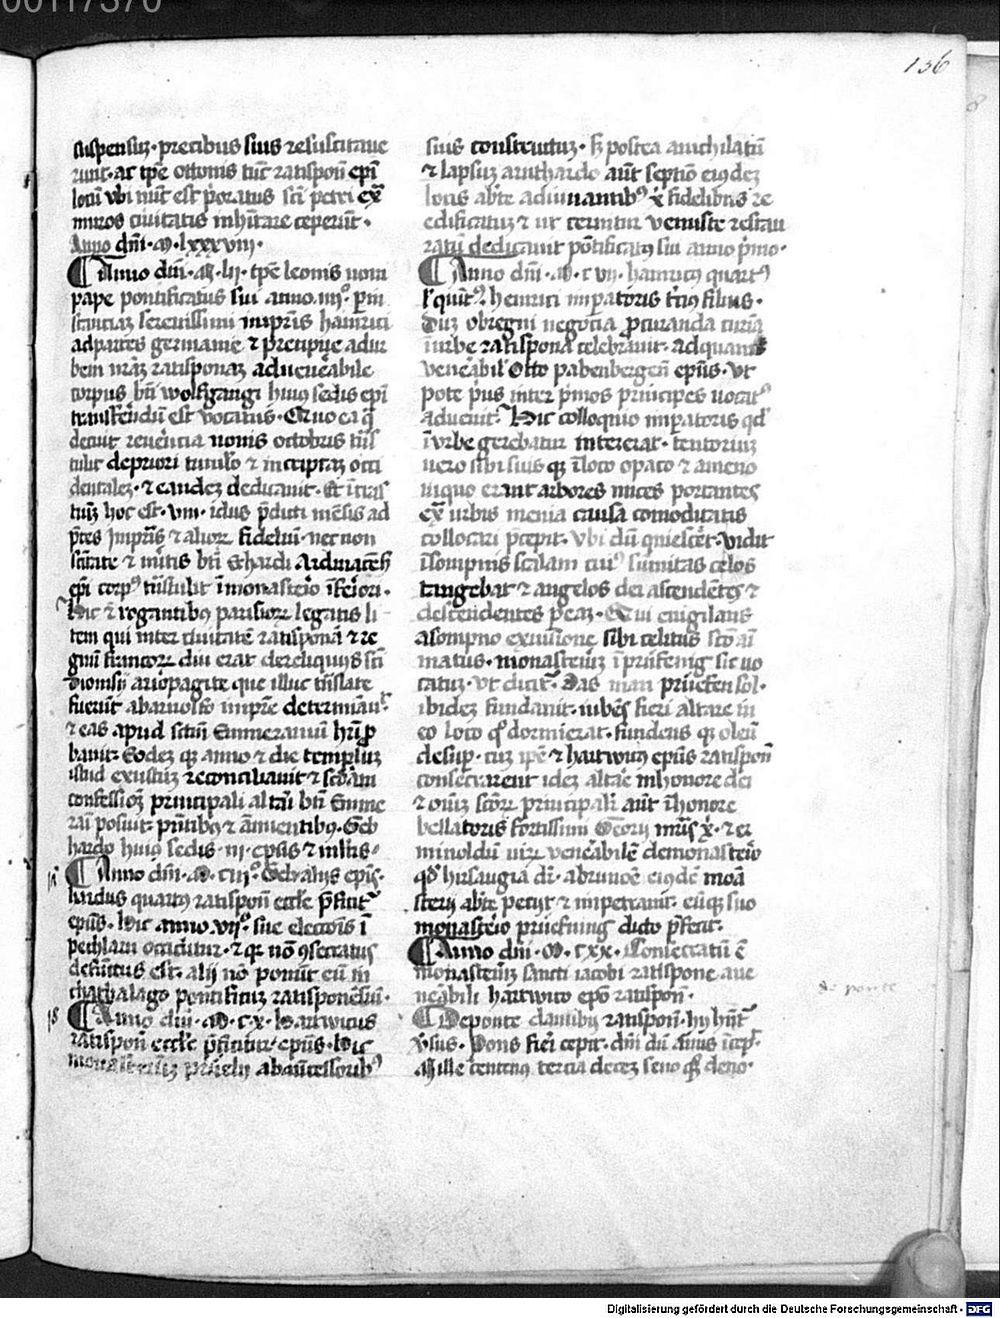 00117370
136
suspensuz. precibus suis resuscitaue
runt. ac tpe ottonis tunc ratisponn epi
locu vbi nunc est prioratus sci petri ex
muros ciuitatis inhitare ceperunt.
Anno dni. M. lxxxviij.
Anno dni. M. lij. tpe leonis noni
pape pontificatus sui anno. iiij.
serenissimi impris hainrici
ad partes germanie et precipue ad ur
bem nram ratisponam ad veneabile
corpus bti wolfgangi huius sedis epi
est vocatus. Quo ea qua
decuit reuerencia nonis octobris trns
tulit de priori tumulo et in criptam occi
dentalem. et eandez dedicauit. Et
hoc est. viij. idus pdicti mensis ad
pces impris et alior fidelium necnon
et bti Erhardi Ardinacesis
epi corpus trnstulit i monasterio iferiori.
Hic et rogantibus parisior legatis li
tem qui inter ciuitate ratisponam et re
gnum francor diu erat de reliquijs sci
dionisij ariopagite que illuc trnslate
fuerunt ab arnolfo impre
et eas apud sctm Emmeramu hri p
bauit. Eodez que anno et die templum
istud exustuz reconciliauit et scdam
principali altari bti Emme
rami posuit. pntibus et annuentibus. Geb
hardo huius sedis. iij. epis et multis.
Anno dni. M. ciij. Gebhardus epis.
hardus quartus ratisponn eccle pficitur
epus. Hic anno. vij. sue eleccois i
pechlarn occiditur. et quia non consecratus
defunctus est. alij non ponunt eum in
chathalago pontificuz ratisponensium.
Anno dni. M. c. x. Hartwicus
ratisponn eccle pficitur epus. Hic
monasteriuz ab antecessoribus
suis constructuz. sed postea anichilatum
et lapsuz aut septio eiusdez
loci abte adiuuantibus x fidelibus re
edificatuz et ut cernitur venuste restau
ratum dedicauit pontificatus sui anno primo.
Anno dni. M. c vij. hainricus quartus
henrici imperatoris tcius filius.
Dum ob regni negocia pcuranda curia
i vrbe ratispona celebrauit. ad quam
veneabil Otto pabenbergen epus. vt
pote prius inter primos principes uocatus
aduenit. Hic colloquio imperatoris quod
i vrbe gerebatur intererat. tentorium
uero sibi suis que i loco opaco et ameno
in quo erant arbores nuces portantes
ex vrbis menia causa comoditatis
collocari precepit. Vbi dum quiesceret. vidit
i sompnis scalam cuius sumitas celos
tangebat et angelos dei ascendentes et
descendentes per eam. Qui euigilans
a sompno ex visione sibi celitus
matus. monasteriuz i prüfenig sic uo
catuz. vt dicitur. Das man prüefen sol.
ibidez fundauit. iubens fieri altare in
eo loco quo dormierat. fundens que oleum
desuper. cuz ipe et hartwicus epus ratisponn
consecrarent idez altare in honore dei
et omnium scor principalit aut i honore
bellatoris fortissimi Georij mris x. et er
minoldum viru veneabile de monasterio
quod hirsaugia dr. ab eiusde mona
sterij abte petijt et impetrauit. eumque suo
monasterio prüefning dicto prefecit.
Anno dni. M. cxx. Consecratum e
monasterium sancti iacobi ratispone a ue
nerabili hartwico epo ratisponn.
De ponte danubij ratisponn. hij habentur
versus. Pons fieri cepit. dni dum annus icepit
Mille centenus tercia decem seno quod deno.
de ponte
Digitalisierung gefördert durch die Deutsche Forschungsgemeinschaft - DFG